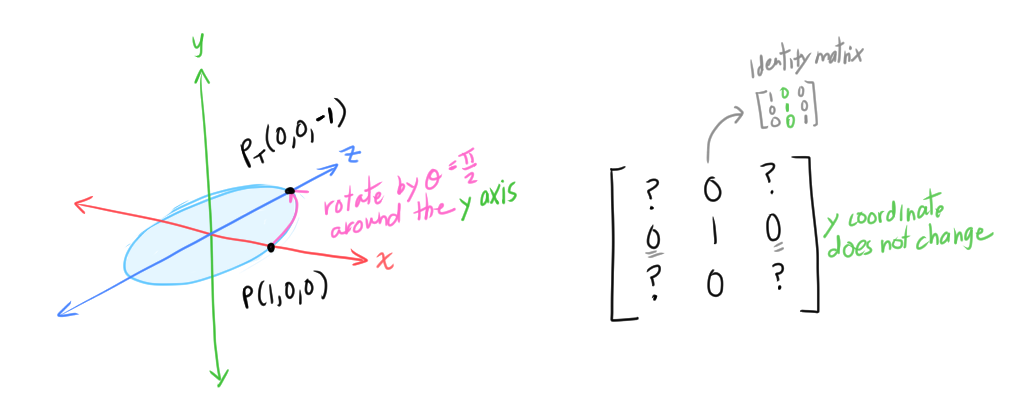 y
P_T(0,0,-1)
z
rotate by θ = π/2
around the y axis
x
P(1,0,0)
y
Identity matrix
1 0 0
0 1 0
0 0 1
? 0 ?
0 1 0
? 0 ?
y coordinate
does not change